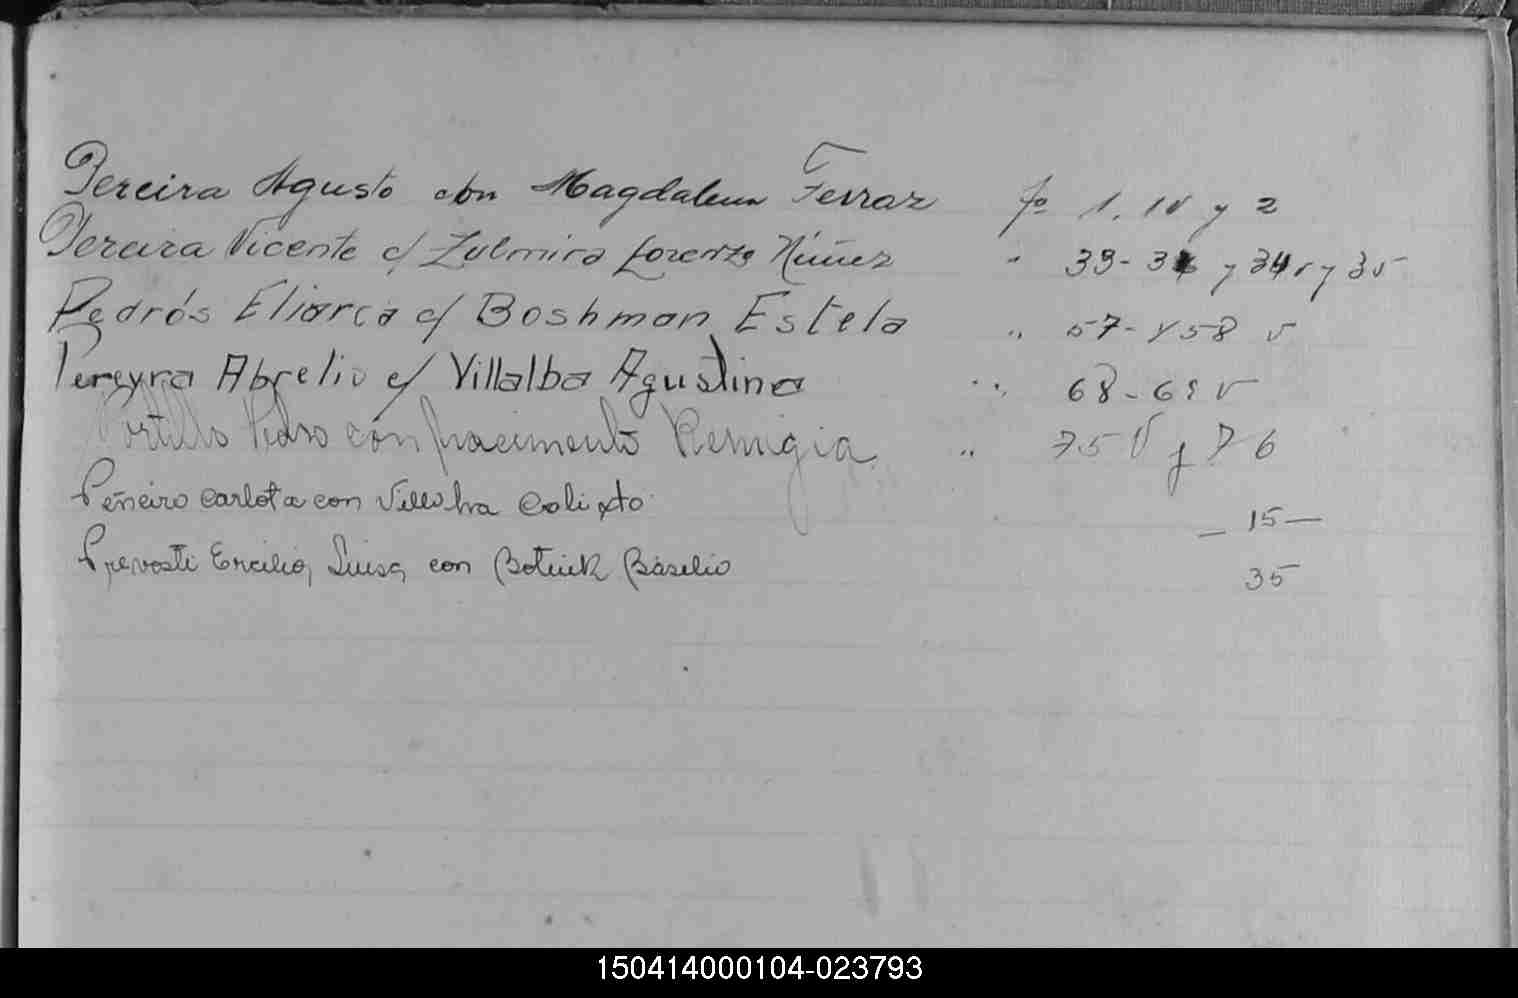 Pereira Agusto con Magdalena Ferraz fo 1. 1v y 2
Pereira Vicente c/ Zulmira Lorenzo Núñez " 33- 34 y 34 v y 35
Pedrós Eliarca c/ Boshman Estela " 57- y 58 v
Pereyra Abrelio c/ Villalba Agustina " 68-69 v
Portillo Pedro con Nacimento Remigia " 75 V y 76
Peñeiro Carlota con Villalba Calixto — 15 —
Prevosti Ercilia Luisa con Botuik Basilio 35
150414000104-023793